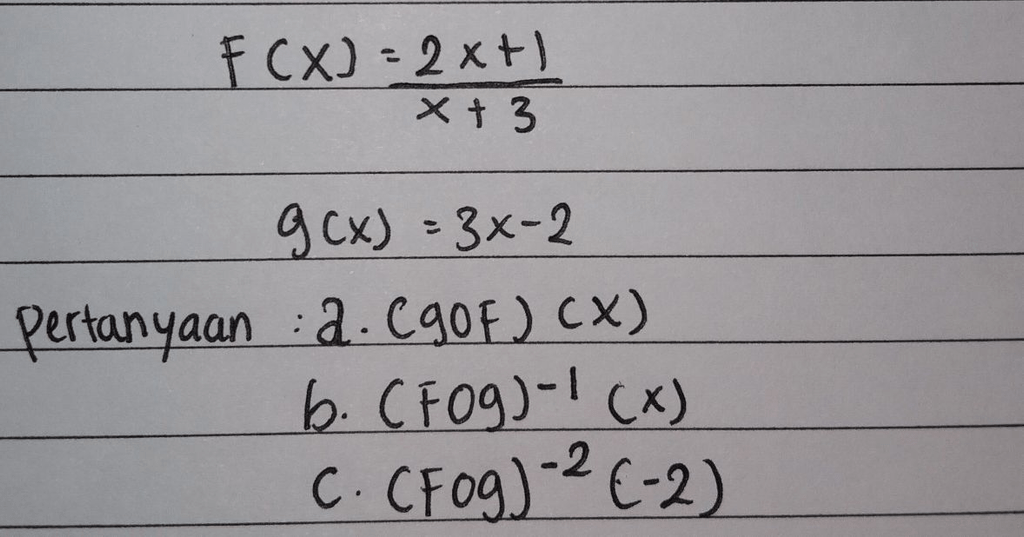 F(x) = 2x+1
x + 3
g(x) = 3x-2
Pertanyaan : a. (gOF) (x)
b. (FOg)-1 (x)
c. (FOg)-2 (-2)